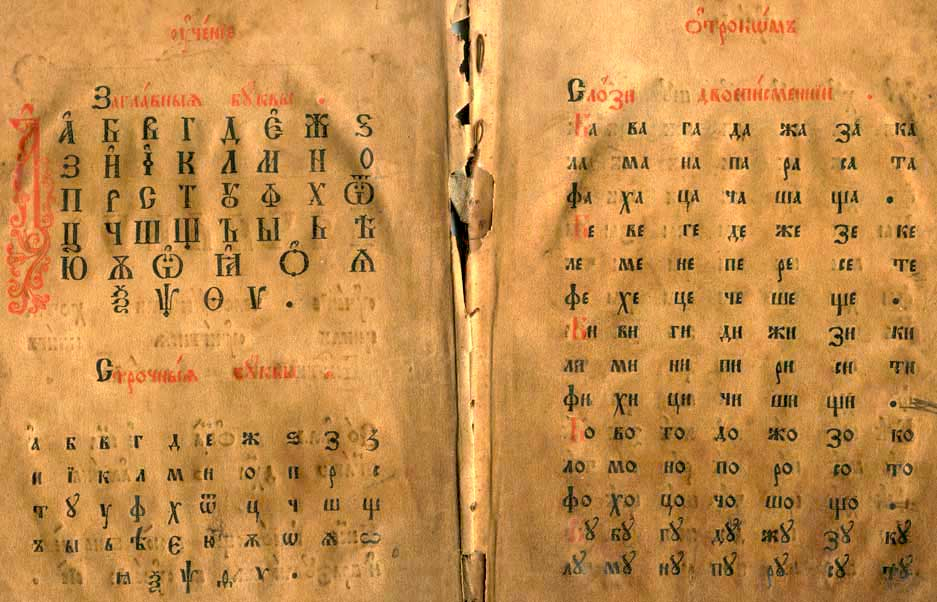 Оу҆че́нїе
Загла́вныѧ бꙋ́квы .
А҆ Б В Г Д Є҆ Ж Ѕ
З И҆ І҆ К Л М Н О
П Р С Т Ꙋ Ф Х Ѿ
Ц Ч Ш Щ Ъ Ы Ь Ѣ
Ю҆ Ѫ Ѡ҆ Ꙗ҆ Ѻ҆ Ѧ
Ѯ Ѱ Ѳ Ѵ .
Строчны́ѧ бꙋ́квы
а б в г д е ж ѕ з ꙁ
и ї к л м н п р с
т ꙋ у ф х ѿ ц ч ш щ
ъ ы ь ѣ є ю ѫ ѡ ѧ
ꙗ ѯ ѱ ѵ .
Ѻ҆трокѡ́мъ
Сло́зи двоепи́сменнїи .
Ба ва га да жа за ка
ла ма на па ра са та
фа ха ца ча ша ща .
Бе ве ге де же зе ке
ле ме не пе ре се те
фе хе це че ше ще .
Би ви ги ди жи зи ки
ли ми ни пи ри си ти
фи хи ци чи ши щи .
Бо во го до жо зо ко
ло мо но по ро со то
фо хо цо чо шо що .
Бꙋ вꙋ гꙋ дꙋ жꙋ зꙋ кꙋ
лꙋ мꙋ нꙋ пꙋ рꙋ сꙋ тꙋ